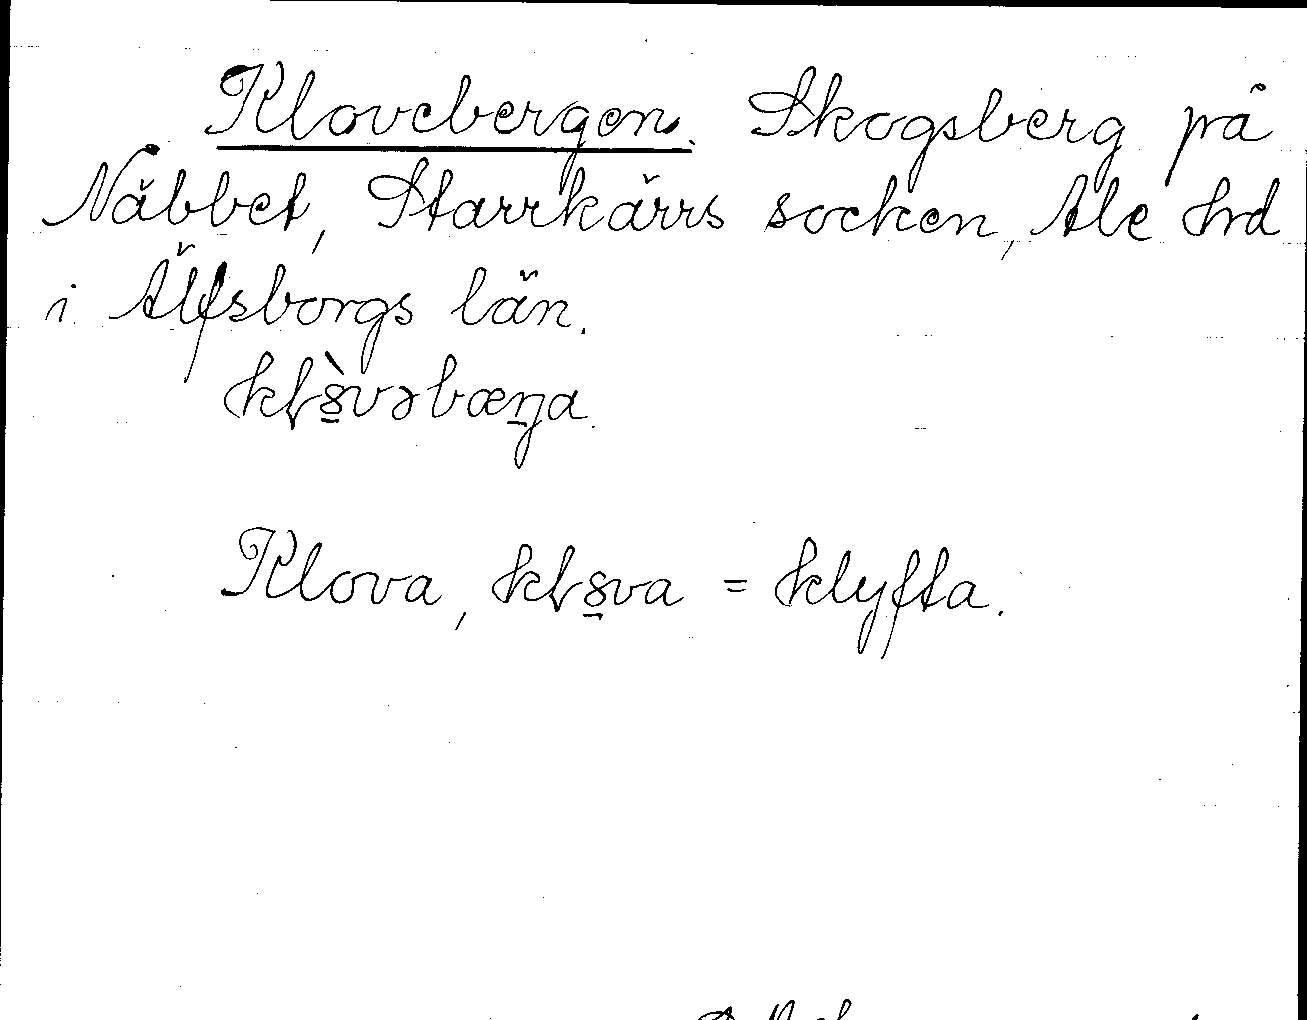 Klovebergen. Skogsberg på
Näbbet, Starrkärrs socken, Ale hrd
i Älfsborgs län.
kɫo̱̊̀vəbæŋa.
Klova, kɫo̱̊va = klyfta.